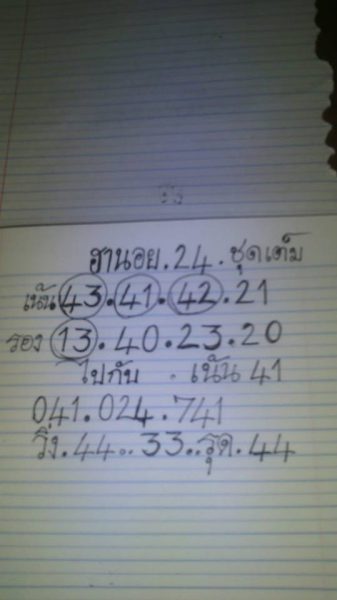 ฮานอย.24.ชุดเต็ม
เน้น43.41.42.21
รอง 13.40.23.20
ไปกับ . เน้น 41
041.024.741
วิ่ง.44..33..รูด.44